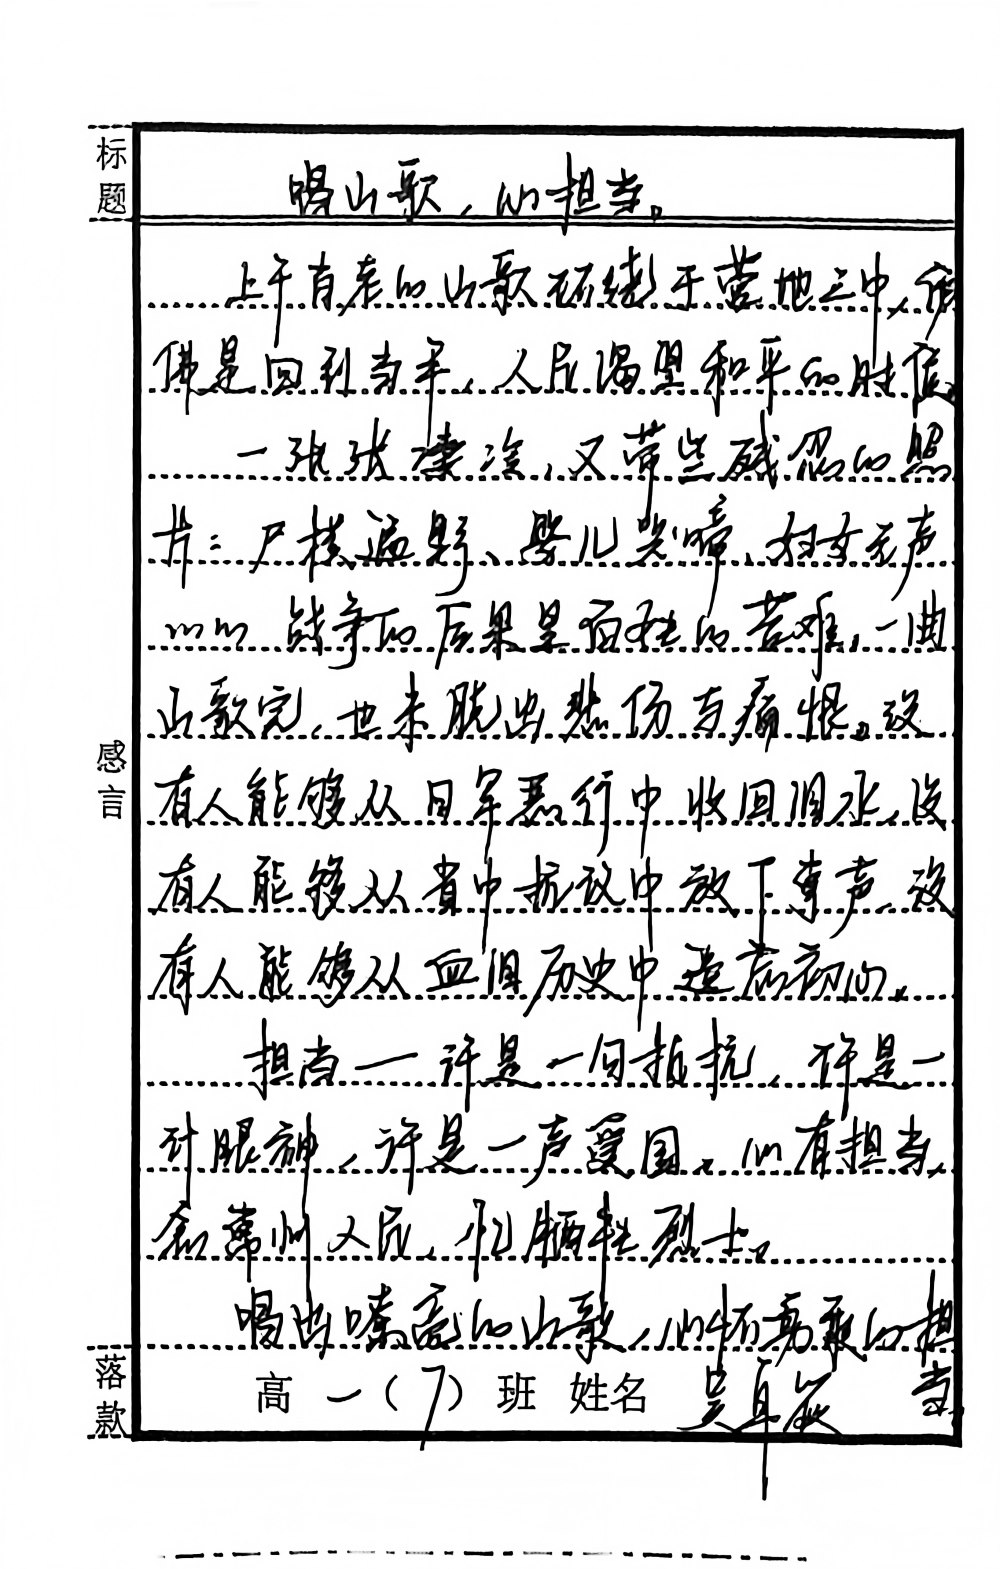 标题
唱山歌，心担当。
上午育老的山歌环绕于营地之中，彷
佛是回到当年，人民渴望和平的时候。
一张张凄冷，又带些残忍的照
片：尸横遍野、婴儿哭啼、妇女无声
…… 战争的后果是百姓的苦难，一曲
山歌完，也未脱出悲伤与痛恨。没
有人能够从日军恶行中收回泪水，没
有人能够从省中抗议中放下掌声，没
有人能够从血泪历史中遗忘初心。
感言
担当——许是一句抵抗，许是一
对眼神，许是一声爱国。心有担当，
念常州人民，忆牺牲烈士。
唱出嘹亮的山歌，心怀勇敢的担
当。
落款
高一（7）班 姓名 吴